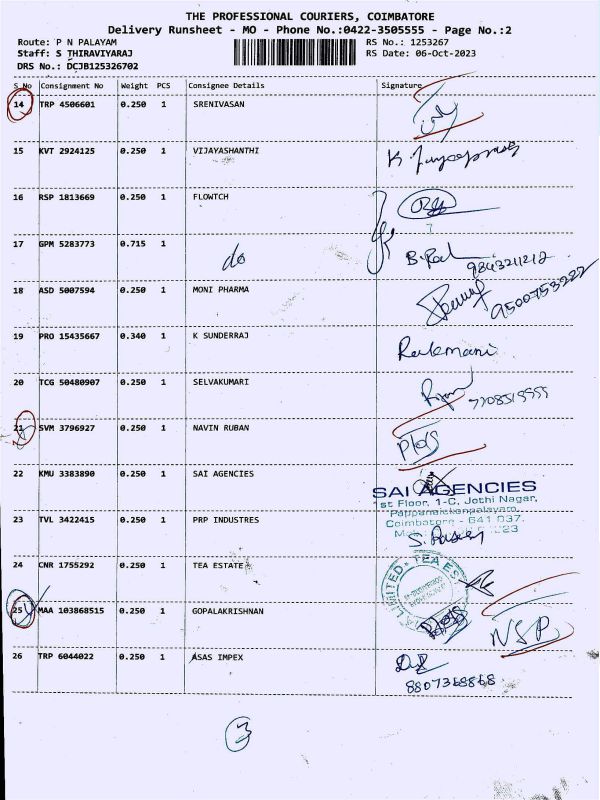 THE PROFESSIONAL COURIERS, COIMBATORE
Delivery Runsheet - MO - Phone No.:0422-3505555 - Page No.:2
Route: P N PALAYAM RS No.: 1253267
Staff: S THIRAVIYARAJ RS Date: 06-Oct-2023
DRS No.: DCJB125326702
S No Consignment No Weight PCS Consignee Details Signature
14 TRP 4506601 0.250 1 SRENIVASAN
15 KVT 2924125 0.250 1 VIJAYASHANTHI
16 RSP 1813669 0.250 1 FLOWTCH
17 GPM 5283773 0.715 1 do 9843211212
18 ASD 5007594 0.250 1 MONI PHARMA 9500753222
19 PRO 15435667 0.340 1 K SUNDERRAJ
20 TCG 50480907 0.250 1 SELVAKUMARI
21 SVM 3796927 0.250 1 NAVIN RUBAN
22 KMU 3383890 0.250 1 SAI AGENCIES
SAI AGENCIES
1st Floor, 1-C, Jothi Nagar,
Pappanaickenpalayam,
Coimbatore - 641 037.
23 TVL 3422415 0.250 1 PRP INDUSTRES
24 CNR 1755292 0.250 1 TEA ESTATE
LIMITED
25 MAA 103868515 0.250 1 GOPALAKRISHNAN NSP
26 TRP 6044022 0.250 1 ASAS IMPEX
8807368868
3